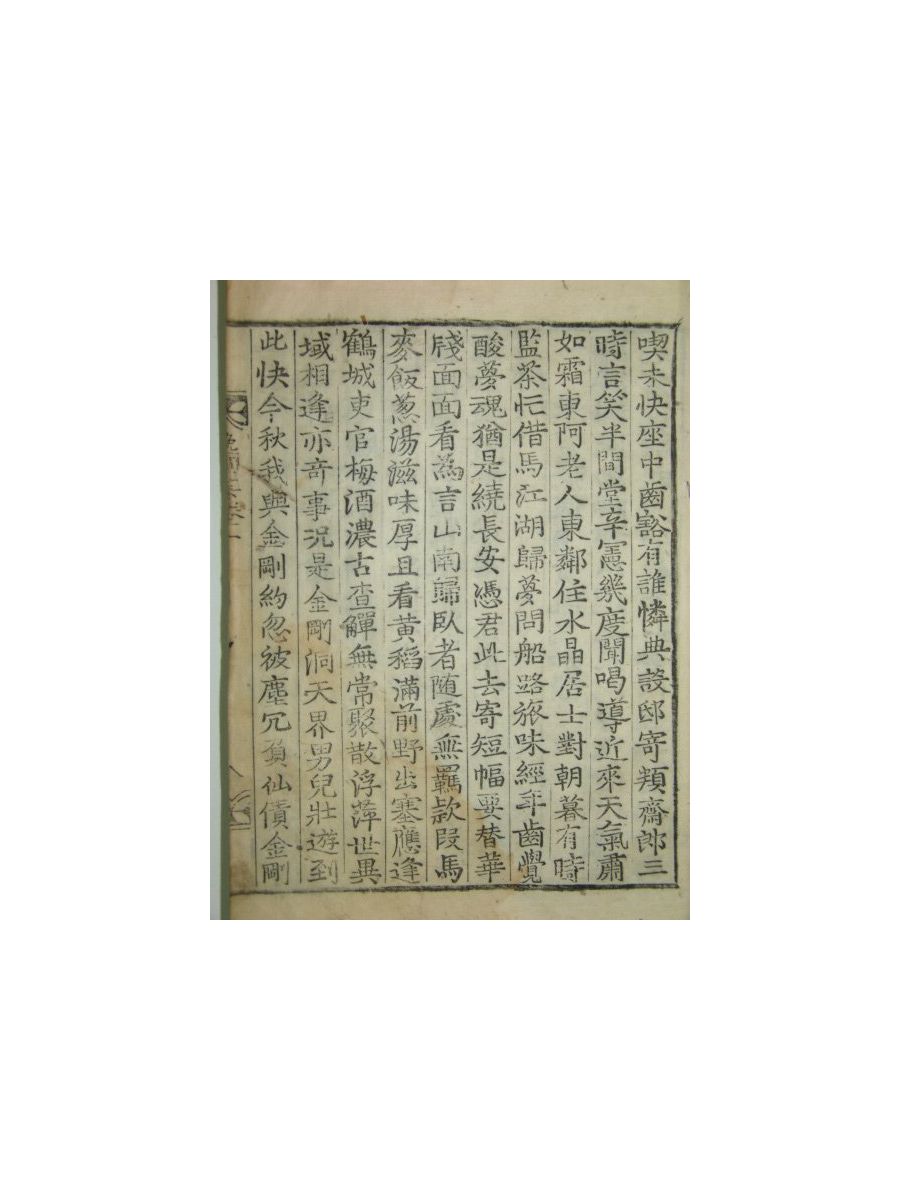 喫未快座中齒豁有誰憐典設邸寄頖齋郎三
時言笑半間堂辛憲幾度聞喝導近來天氣肅
如霜東阿老人東鄰住水晶居士對朝暮有時
監茶忙借馬江湖歸夢問船路旅味經年齒覺
酸夢魂猶是繞長安憑君此去寄短幅要替華
牋面面看為言山南歸臥者随處無羈款段馬
麥飯葱湯滋味厚且看黄稻滿前野出塞應逢
鶴城吏官梅酒濃古查觶無常聚散浮萍世異
域相逢亦奇事况是金剛洞天界男兒壯遊到
此快今秋我與金剛約忽被塵冗負仙債金剛